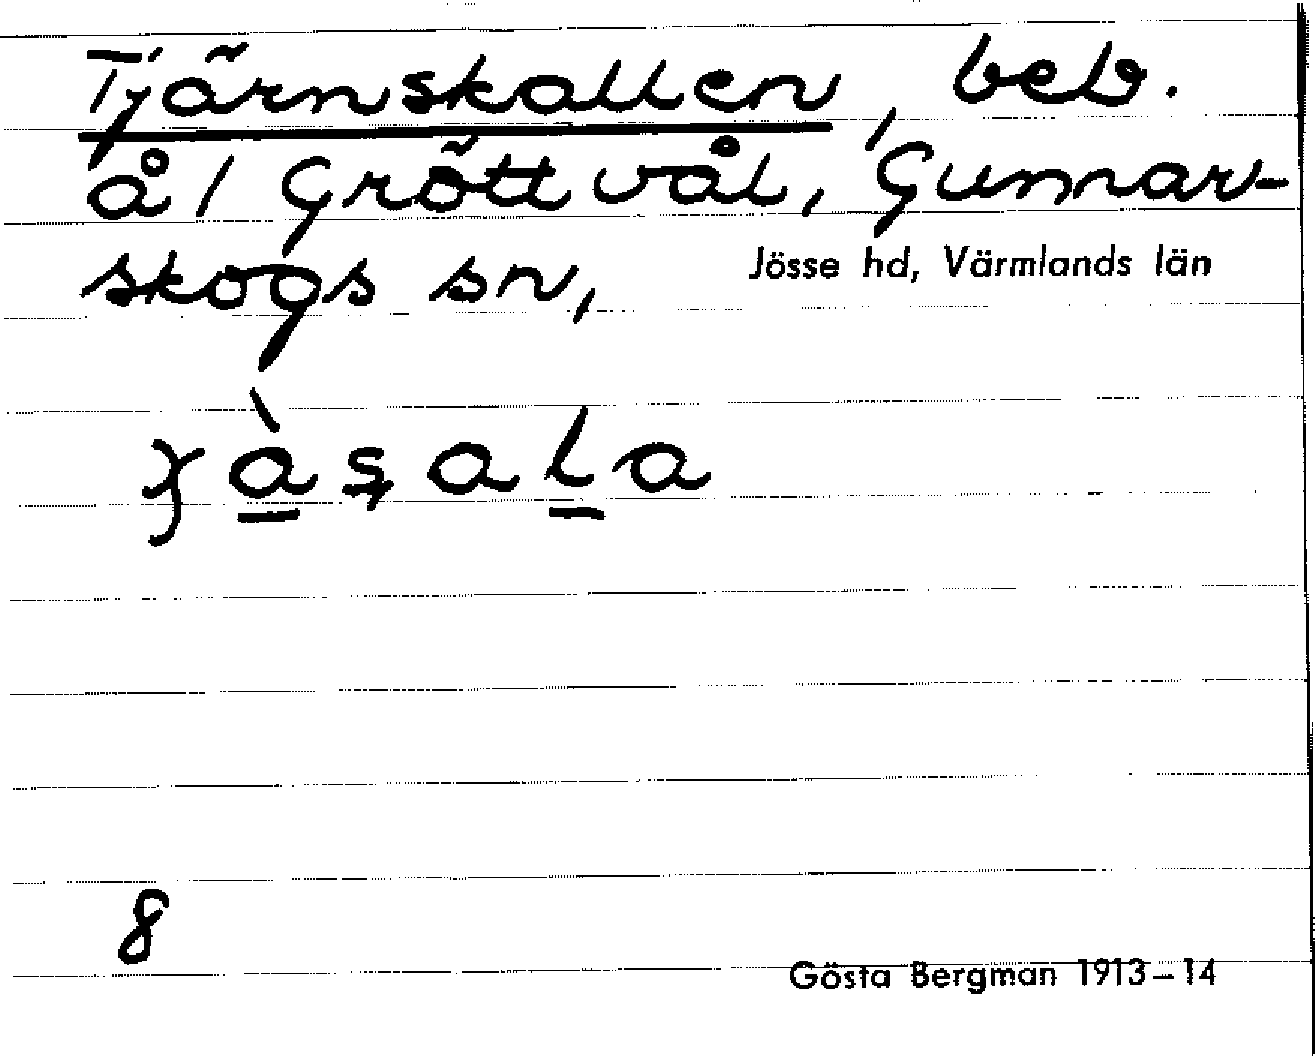 Tjärnskallen, beb.
å / Gröttvål, Gunnar-
skogs sn,
Jösse hd, Värmlands län
8
Gösta Bergman 1913–14